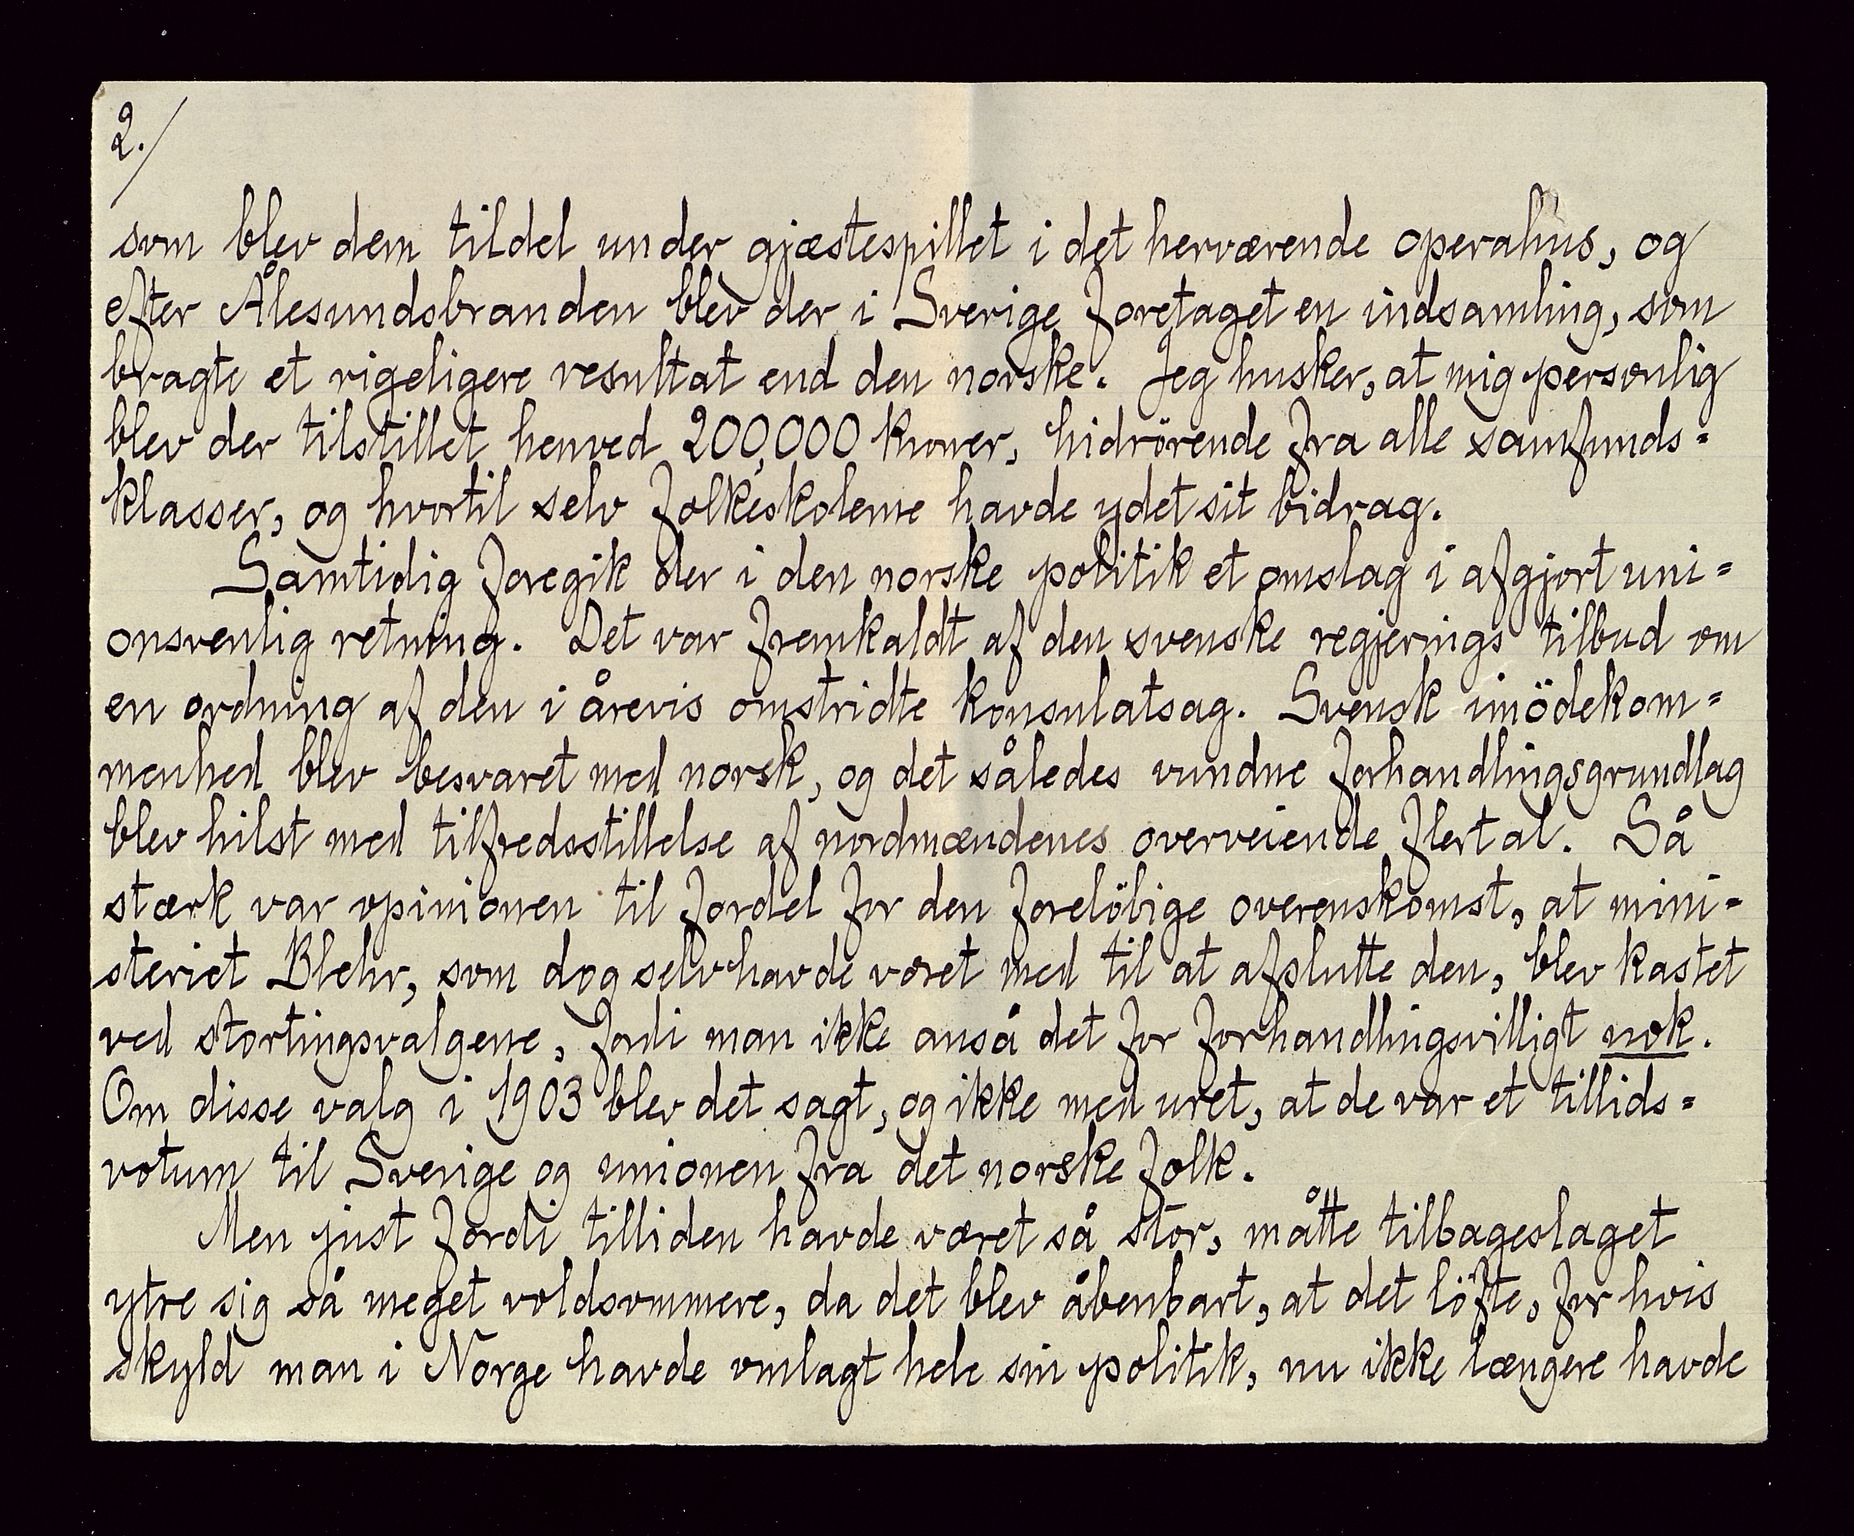 2./
som blev dem tildel under gjæstespillet i det herværende operahus, og
efter Ålesundsbranden blev der i Sverige foretaget en indsamling, som
bragte et rigeligere resultat end den norske. Jeg husker, at mig personlig
blev der tilstillet henved 200,000 kroner, hidrörende fra alle samfunds=
klasser, og hvortil selv folkeskolerne havde ydet sit bidrag.
Samtidig foregik der i den norske politik et omslag i afgjort uni=
onsvenlig retning. Det var fremkaldt af den svenske regjerings tilbud om
en ordning af den i årevis omstridte konsulatsag. Svensk imödekom=
menhed blev besvaret med norsk, og det således vundne forhandlingsgrundlag
blev hilst med tilfredsstillelse af nordmændenes overveiende flertal. Så
stærk var opinionen til fordel for den forelöbige overenskomst, at mini=
steriet Blehr, som dog selv havde været med til at afslutte den, blev kastet
ved stortingsvalgene, fordi man ikke anså det for forhandlingsvilligt nok.
Om disse valg i 1903 blev det sagt, og ikke med uret, at de var et tillids=
votum til Sverige og unionen fra det norske folk.
Men just fordi tilliden havde været så stor, måtte tilbageslaget
ytre sig så meget voldsommere, da det blev åbenbart, at det löfte, for hvis
skyld man i Norge havde omlagt hele sin politik, nu ikke længere havde